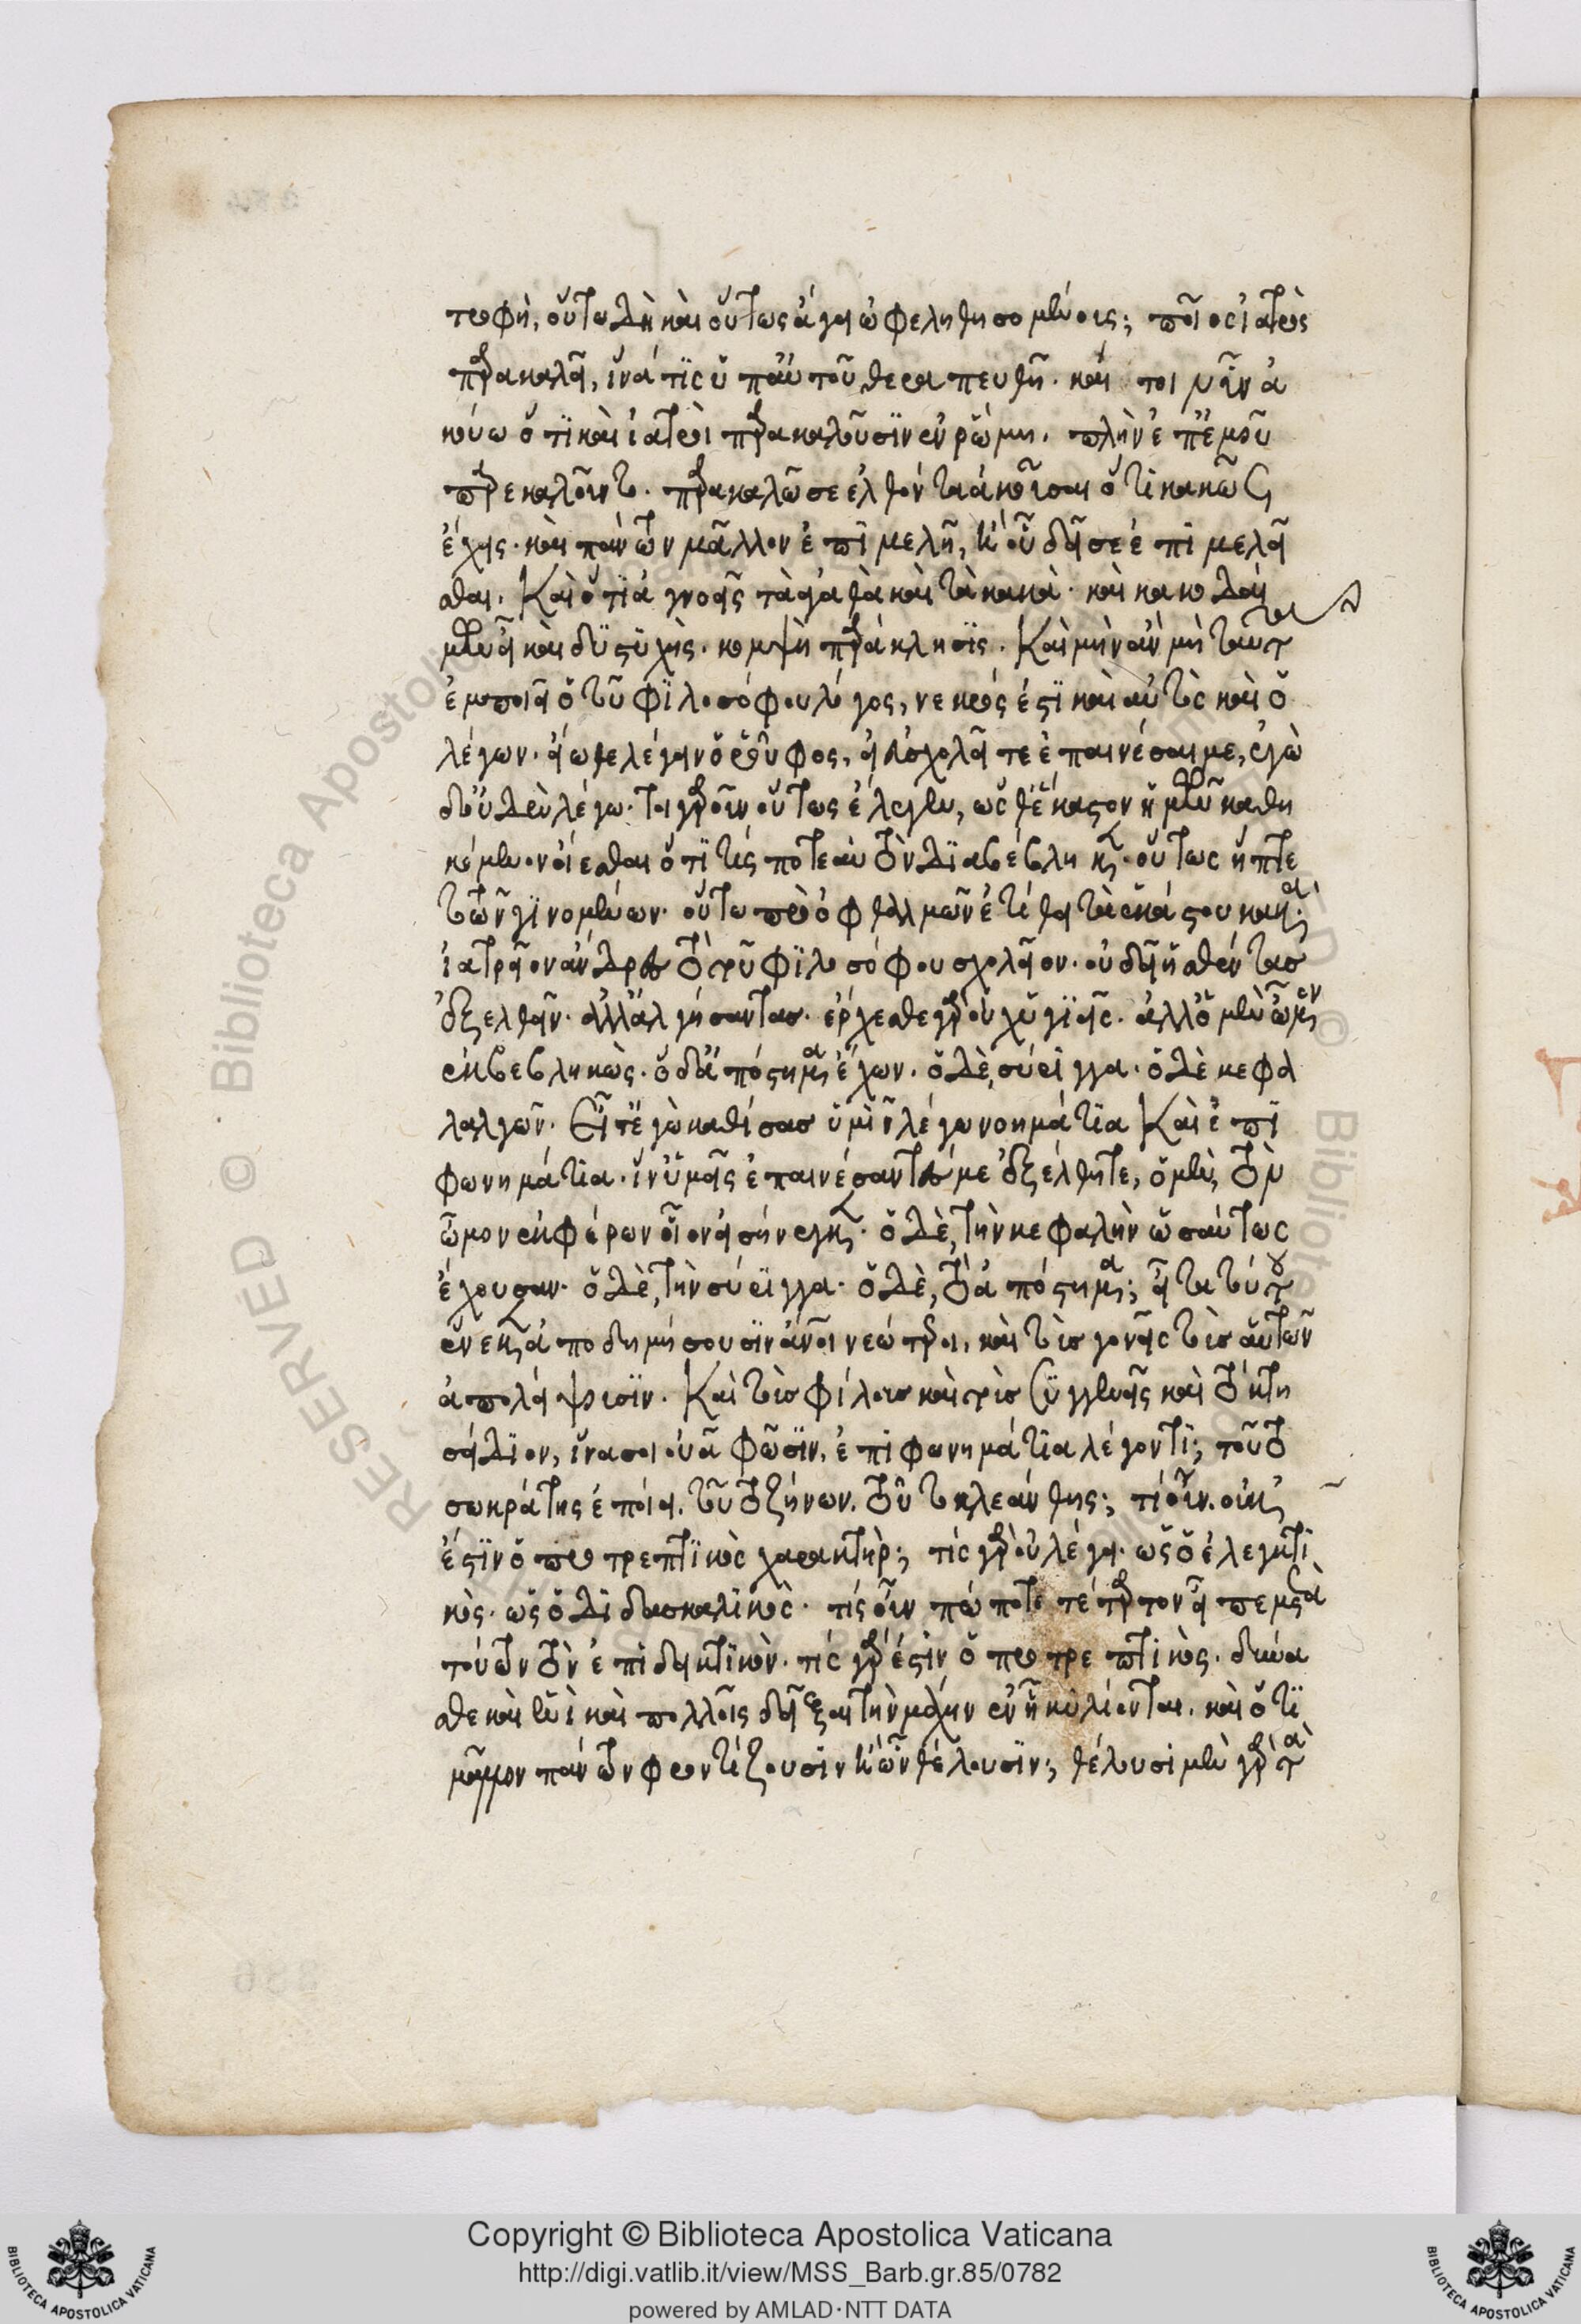 τροφή, οὕτω δὴ καὶ οὕτως ἄγει ὠφεληθησομένους; ποῖος ἰατρὸς
παρακαλεῖ, ἵνα τὶς ὑπ' αὐτοῦ θεραπευθῇ. καίτοι νῦν ἀ
κούω ὅτι καὶ ἰατροὶ παρακαλοῦσιν ἐν ῥώμῃ. πλὴν ἐπ' ἐμοῦ
παρεκαλοῦντο. παρακαλῶ σε ἐλθόντα ἀκοῦσαι ὅτι κακῶς
ἔχεις. καὶ πάντων μᾶλλον ἐπιμελῇ, ἢ οὗ δεῖ σε ἐπιμελεῖ
σθαι. Καὶ ὅτι ἀγνοεῖς τὰ ἀγαθὰ καὶ τὰ κακὰ. καὶ κακοδαι
μονεῖς καὶ δυστυχὴς. κομψὴ παράκλησις. Καὶ μὴν ἀν μὴ ταῦτα
ἐμποιεῖ ὁ τοῦ φιλοσόφου λόγος, νεκρός ἐστι καὶ αὐτὸς καὶ ὁ
λέγων. εἴωθε λέγειν ὁ ῥοῦφος, εἰ εὐσχολεῖτε ἐπαινέσαι με, ἐγὼ
δ' οὐδὲν λέγω. τοιγαροῦν οὕτως ἔλεγεν, ὡς θ' ἕκαστον ἡμῶν καθή
κέμενον οἴεσθαι ὅτι τίς ποτε αὐτὸν διαβέβληκε. οὕτως ἥπτε
τῶν γινομένων. οὕτω πρὸ ὀφθαλμῶν ἐτίθει τὰ ἑκάστου κακά.
ἰατρεῖον ἄνδρες τὸ τοῦ φιλοσόφου σχολεῖον. οὐ δεῖ ἡσθέντας
ἐξελθεῖν. ἀλλ' ἀλγήσαντας. ἔρχεσθε γὰρ οὐχ ὑγιεῖς. ἀλλ' ὁ μὲν ὦμον
ἐκβεβληκὼς. ὁ δ' ἀπόστημα ἔχων. ὁ δὲ, σύριγγα. ὁ δὲ κεφα
λαλγῶν. Εἶτ' ἐγὼ καθίσας ὑμῖν λέγω νοημάτια Καὶ ἐπι
φωνημάτια. ἵν' ὑμεῖς ἐπαινέσαντές με ἐξέλθητε, ὁ μὲν, τὸν
ὦμον ἐκφέρων οἷον εἰσήνεγκε. ὁ δὲ, τὴν κεφαλὴν ὡσαύτως
ἔχουσαν. ὁ δὲ, τὴν σύριγγα. ὁ δὲ, τὸ ἀπόστημα; εἶτα τούτου
ἕνεκα ἀποδημήσουσιν ἄνθρωποι νεώτεροι, καὶ τοὺς γονεῖς τοὺς αὑτῶν
ἀπολείψουσιν. Καὶ τοὺς φίλους καὶ τοὺς συγγενεῖς καὶ τὸ κτη
σείδιον, ἵνα σοι οὐᾶ φῶσιν, ἐπιφωνημάτια λέγοντι; τοῦτο
σωκράτης ἐποίει. τοῦτο ζήνων. τοῦτο κλεάνθης; τί οὖν. οὐκ
ἔστιν ὁ προτρεπτικὸς χαρακτὴρ; τίς γὰρ οὐ λέγει. ὡς ὁ ἐλεγκτι
κὸς. ὡς ὁ διδασκαλικὸς. τίς οὖν πώποτε τέταρτον εἶπε μετὰ
τούτων τὸν ἐπιδεικτικὸν. τίς γάρ ἐστιν ὁ προτρεπτικὸς. δύνα
σθαι καὶ ἑνὶ καὶ πολλοῖς δεῖξαι τὴν μάχην ἐν ᾗ κυλίονται. καὶ ὅτι
μᾶλλον πάντων φροντίζουσιν ἢ ὧν θέλουσιν; θέλουσι μὲν γὰρ τὰ